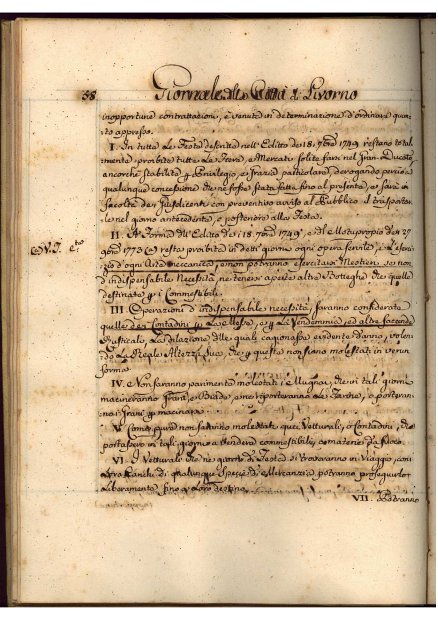 58 Giornale della Città di Livorno
inopportune contrattazioni, è venuta in determinazione d'ordinare quan=
to appresso.
I. In tutte Le Feste descritte nell'Editto de 18. 7bre 1749 restano total
mente proibite tutte Le Fiere, e Mercati soliti farsi nel Gran-Ducato
ancorche stabilite p Privilegio, e Grazia particolare, derogando perciò a
qualunque concessione che ne fosse stata fatta fino al presente, e sarà in
facoltà de Giusdicenti con preventivo avviso al Pubblico il trasportar=
le nel giorno antecedente, o posteriore alla Festa.
II. A forma dell'Editto de 18. 7bre 1749, e dell'altro proprio de 27
(a) V. I. 
agosto 1773 (a) resta proibita in detti giorni ogni opera servile, e L'eserci=
zio d'ogni Arte meccanica, e non potranno esercitarsi Mestieri se non
d'indispensabile Necessità, ne tenersi aperte altre Botteghe che quelle
destinate p i Commestibili.
III. Operazioni d'indispensabile necessità, saranno considerate
quelle dei Contadini p La Messe, e p La Vendemmia, ed altre faccende
Rusticali, La dilazione delle quali cagionasse evidente danno, volen=
do La Reale Altezza Sua che p questa non siano molestati in verun
forma.
IV. Non saranno parimente molestati i Mugnai, che in tali giorni
macineranno Grani, e Biade, e ne riporteranno Le Farine, o porteran=
no i Grani p macinare.
V. Come pure non saranno molestati quei Vetturali, o Contadini, che
portassero in tali giorni a vendere commestibili, o materie da fuoco.
VI. I Vetturali che ne giorni di Festa si troveranno in Viaggio, cari=
chi di qualunque Specie di Mercanzia potranno proseguirlo
Liberamente fino a Loro destino.
VII. Potranno